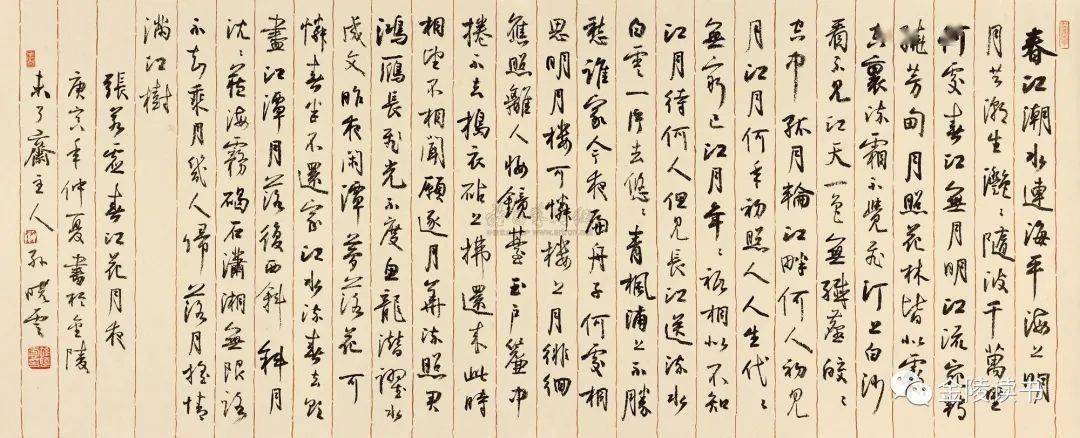 春江潮水連海平海上明
月共潮生灧〻隨波千萬里
何處春江無月明江流宛轉
繞芳甸月照花林皆似霰
空裏流霜不覺飛汀上白沙
看不見江天一色無纖塵皎〻
空中孤月輪江畔何人初見
月江月何年初照人人生代〻
無窮已江月年〻祗相似不知
江月待何人但見長江送流水
白雲一片去悠〻青楓浦上不勝
愁誰家今夜扁舟子何處相
思明月樓可憐樓上月徘徊
應照離人妝鏡臺玉户簾中
捲不去搗衣砧上拂還來此時
相望不相聞願逐月華流照君
鴻雁長飛光不度魚龍潛躍水
成文昨夜閑潭夢落花可
憐春半不還家江水流春去欲
盡江潭月落復西斜斜月
沈〻藏海霧碣石瀟湘無限路
不知乘月幾人歸落月搖情
滿江樹
張若虛春江花月夜
庚寅年仲夏書於金陵
未了齋主人孫曉雲
金陵读书